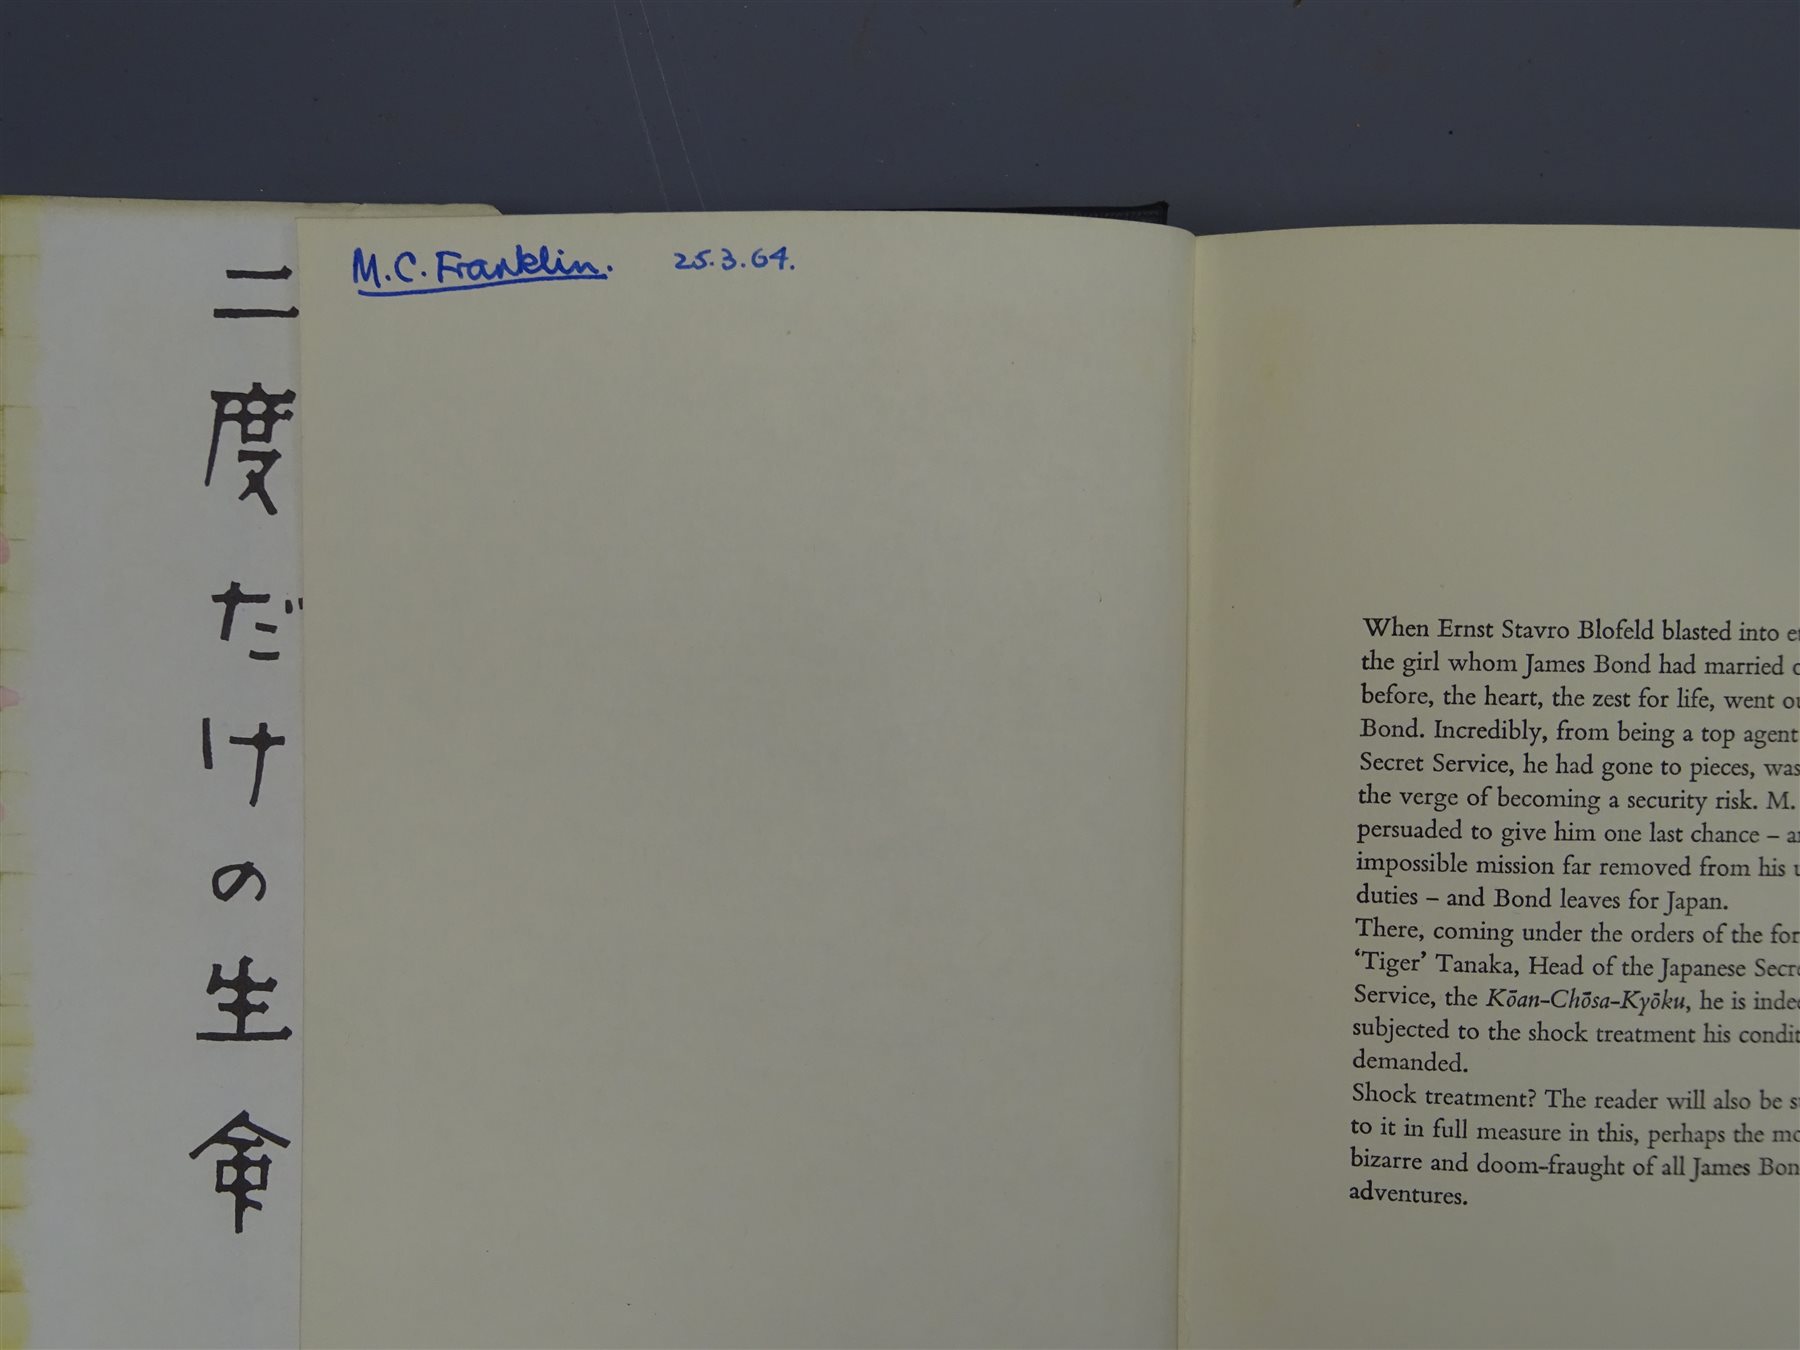 二度だけの生命
M.C. Franklin. 25.3.64.
When Ernst Stavro Blofeld blasted into
the girl whom James Bond had married
before, the heart, the zest for life, went
Bond. Incredibly, from being a top agent
Secret Service, he had gone to pieces, was
the verge of becoming a security risk. M.
persuaded to give him one last chance –
impossible mission far removed from his
duties – and Bond leaves for Japan.
There, coming under the orders of the
‘Tiger’ Tanaka, Head of the Japanese
Service, the Kōan-Chōsa-Kyōku, he is
subjected to the shock treatment his
demanded.
Shock treatment? The reader will also be
to it in full measure in this, perhaps the
bizarre and doom-fraught of all James
adventures.